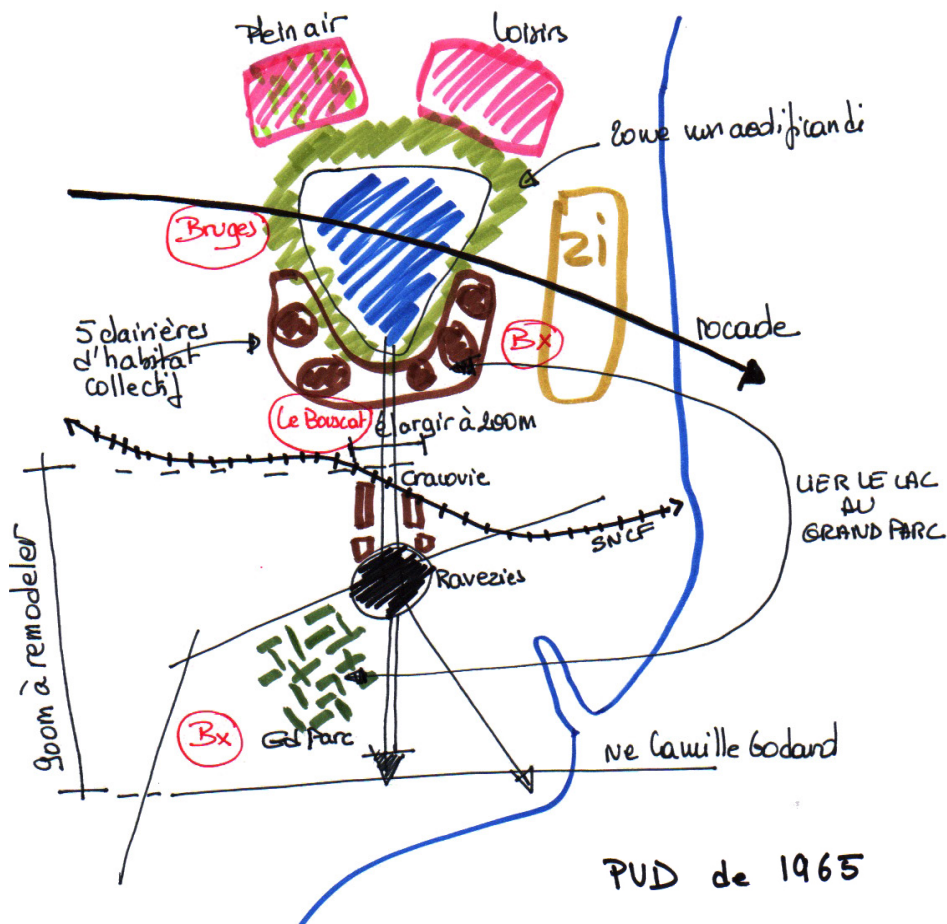 Plein air
Loisirs
zone non aedificandi
Bruges
zi
rocade
5 clairières
d'habitat
collectif
Bx
Le Bouscat
élargir à 200m
Cracovie
LIER LE LAC
AU
GRAND PARC
SNCF
Ravezies
900m à remodeler
Bx
Gd Parc
rue Camille Godard
PUD de 1965